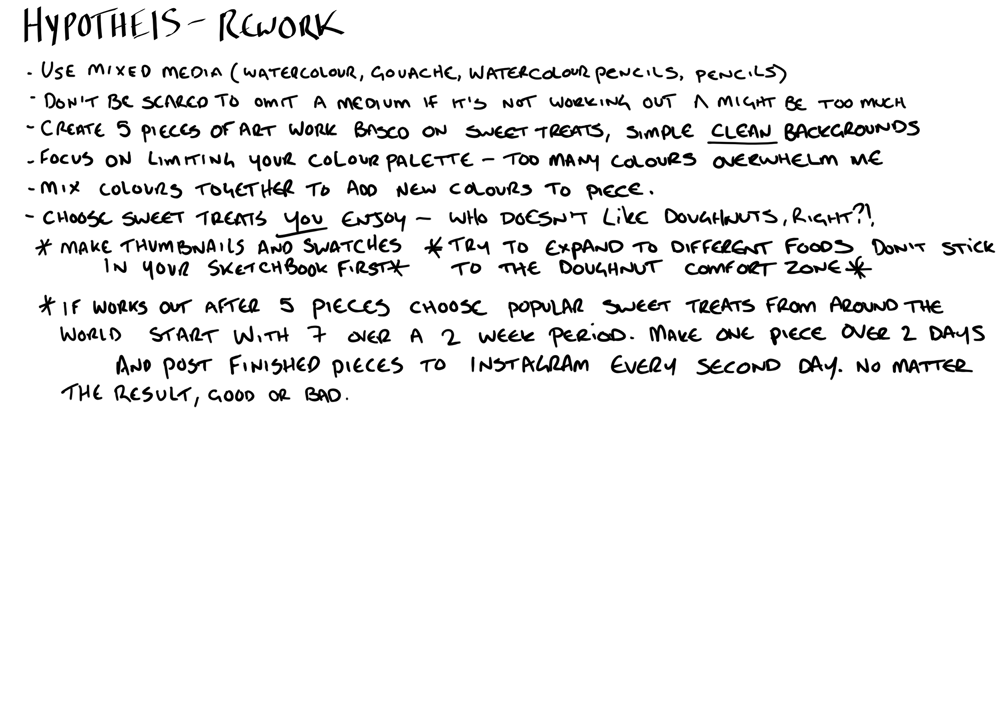 HYPOTHEIS - REWORK
- USE MIXED MEDIA (WATERCOLOUR, GOUACHE, WATERCOLOUR PENCILS, PENCILS)
- DON'T BE SCARED TO OMIT A MEDIUM IF IT'S NOT WORKING OUT A MIGHT BE TOO MUCH
- CREATE 5 PIECES OF ART WORK BASED ON SWEET TREATS, SIMPLE CLEAN BACKGROUNDS
- FOCUS ON LIMITING YOUR COLOUR PALETTE - TOO MANY COLOURS OVERWHELM ME
- MIX COLOURS TOGETHER TO ADD NEW COLOURS TO PIECE.
- CHOOSE SWEET TREATS YOU ENJOY - WHO DOESN'T LIKE DOUGHNUTS, RIGHT?!
* MAKE THUMBNAILS AND SWATCHES * TRY TO EXPAND TO DIFFERENT FOODS DON'T STICK
IN YOUR SKETCHBOOK FIRST* TO THE DOUGHNUT COMFORT ZONE *
* IF WORKS OUT AFTER 5 PIECES CHOOSE POPULAR SWEET TREATS FROM AROUND THE
WORLD START WITH 7 OVER A 2 WEEK PERIOD. MAKE ONE PIECE OVER 2 DAYS
AND POST FINISHED PIECES TO INSTAGRAM EVERY SECOND DAY. NO MATTER
THE RESULT, GOOD OR BAD.